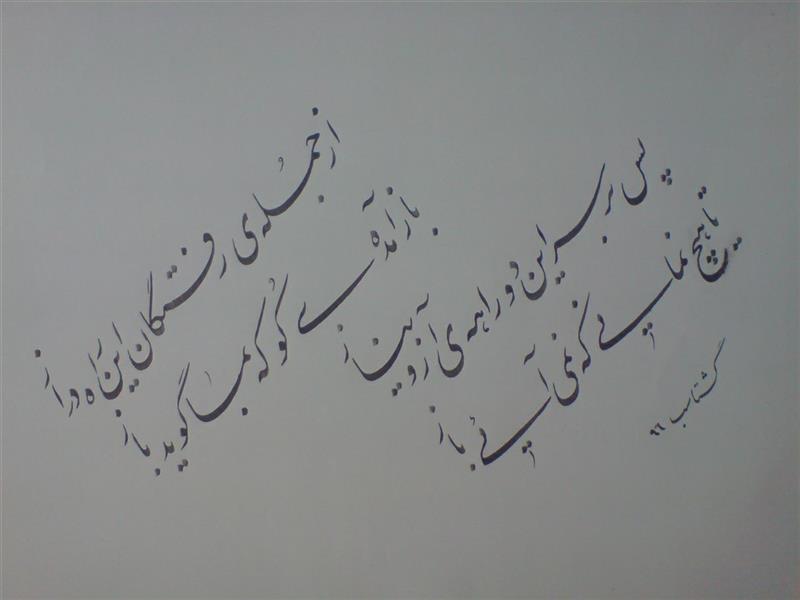 از جمله ی رفتگان این راه دراز
باز آمده ی کو که بما گوید باز
پس بر سر این دو راهه ی آز و نیاز
تا هیچ نمانی که نمی آئی باز
گشتاسب ۹۶